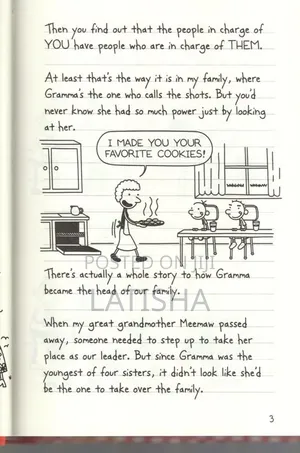 Then you find out that the people in charge of
YOU have people who are in charge of THEM.
At least that's the way it is in my family, where
Gramma's the one who calls the shots. But you'd
never know she had so much power just by looking
at her.
I MADE YOU YOUR
FAVORITE COOKIES!
POSTED ON
LAIISHA
There's actually a whole story to how Gramma
became the head of our family.
When my great grandmother Meemaw passed
away, someone needed to step up to take her
place as our leader. But since Gramma was the
youngest of four sisters, it didn't look like she'd
be the one to take over the family.
3